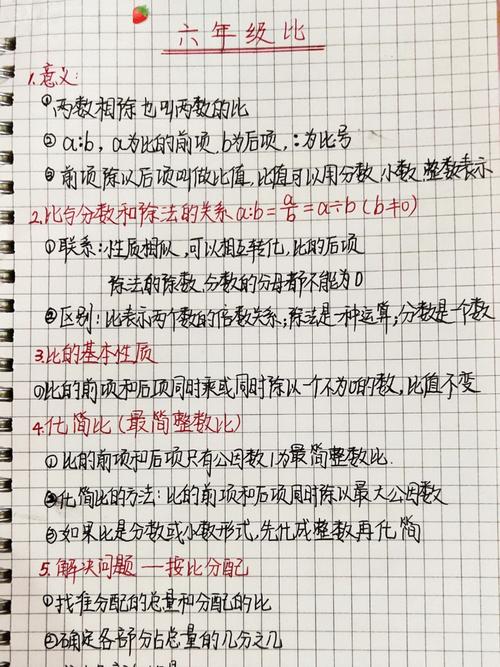 六年级比
1.意义:
①两数相除也叫两数的比
② a:b, a为比的前项,b为后项, :为比号
③ 前项除以后项叫做比值,比值可以用分数,小数,整数表示
2.比与分数和除法的关系 a:b=a/b=a÷b(b≠0)
①联系:性质相似,可以相互转化,比的后项
除法的除数,分数的分母都不能为0
②区别:比表示两个数的倍数关系;除法是一种运算;分数是一个数
3.比的基本性质
①比的前项和后项同时乘或同时除以一个不为0的数,比值不变
4.化简比(最简整数比)
①比的前项和后项只有公因数1为最简整数比.
②化简比的方法:比的前项和后项同时除以最大公因数
③如果比是分数或小数形式,先化成整数再化简
5.解决问题—按比分配
①找准分配的总量和分配的比
②确定各部分占总量的几分之几